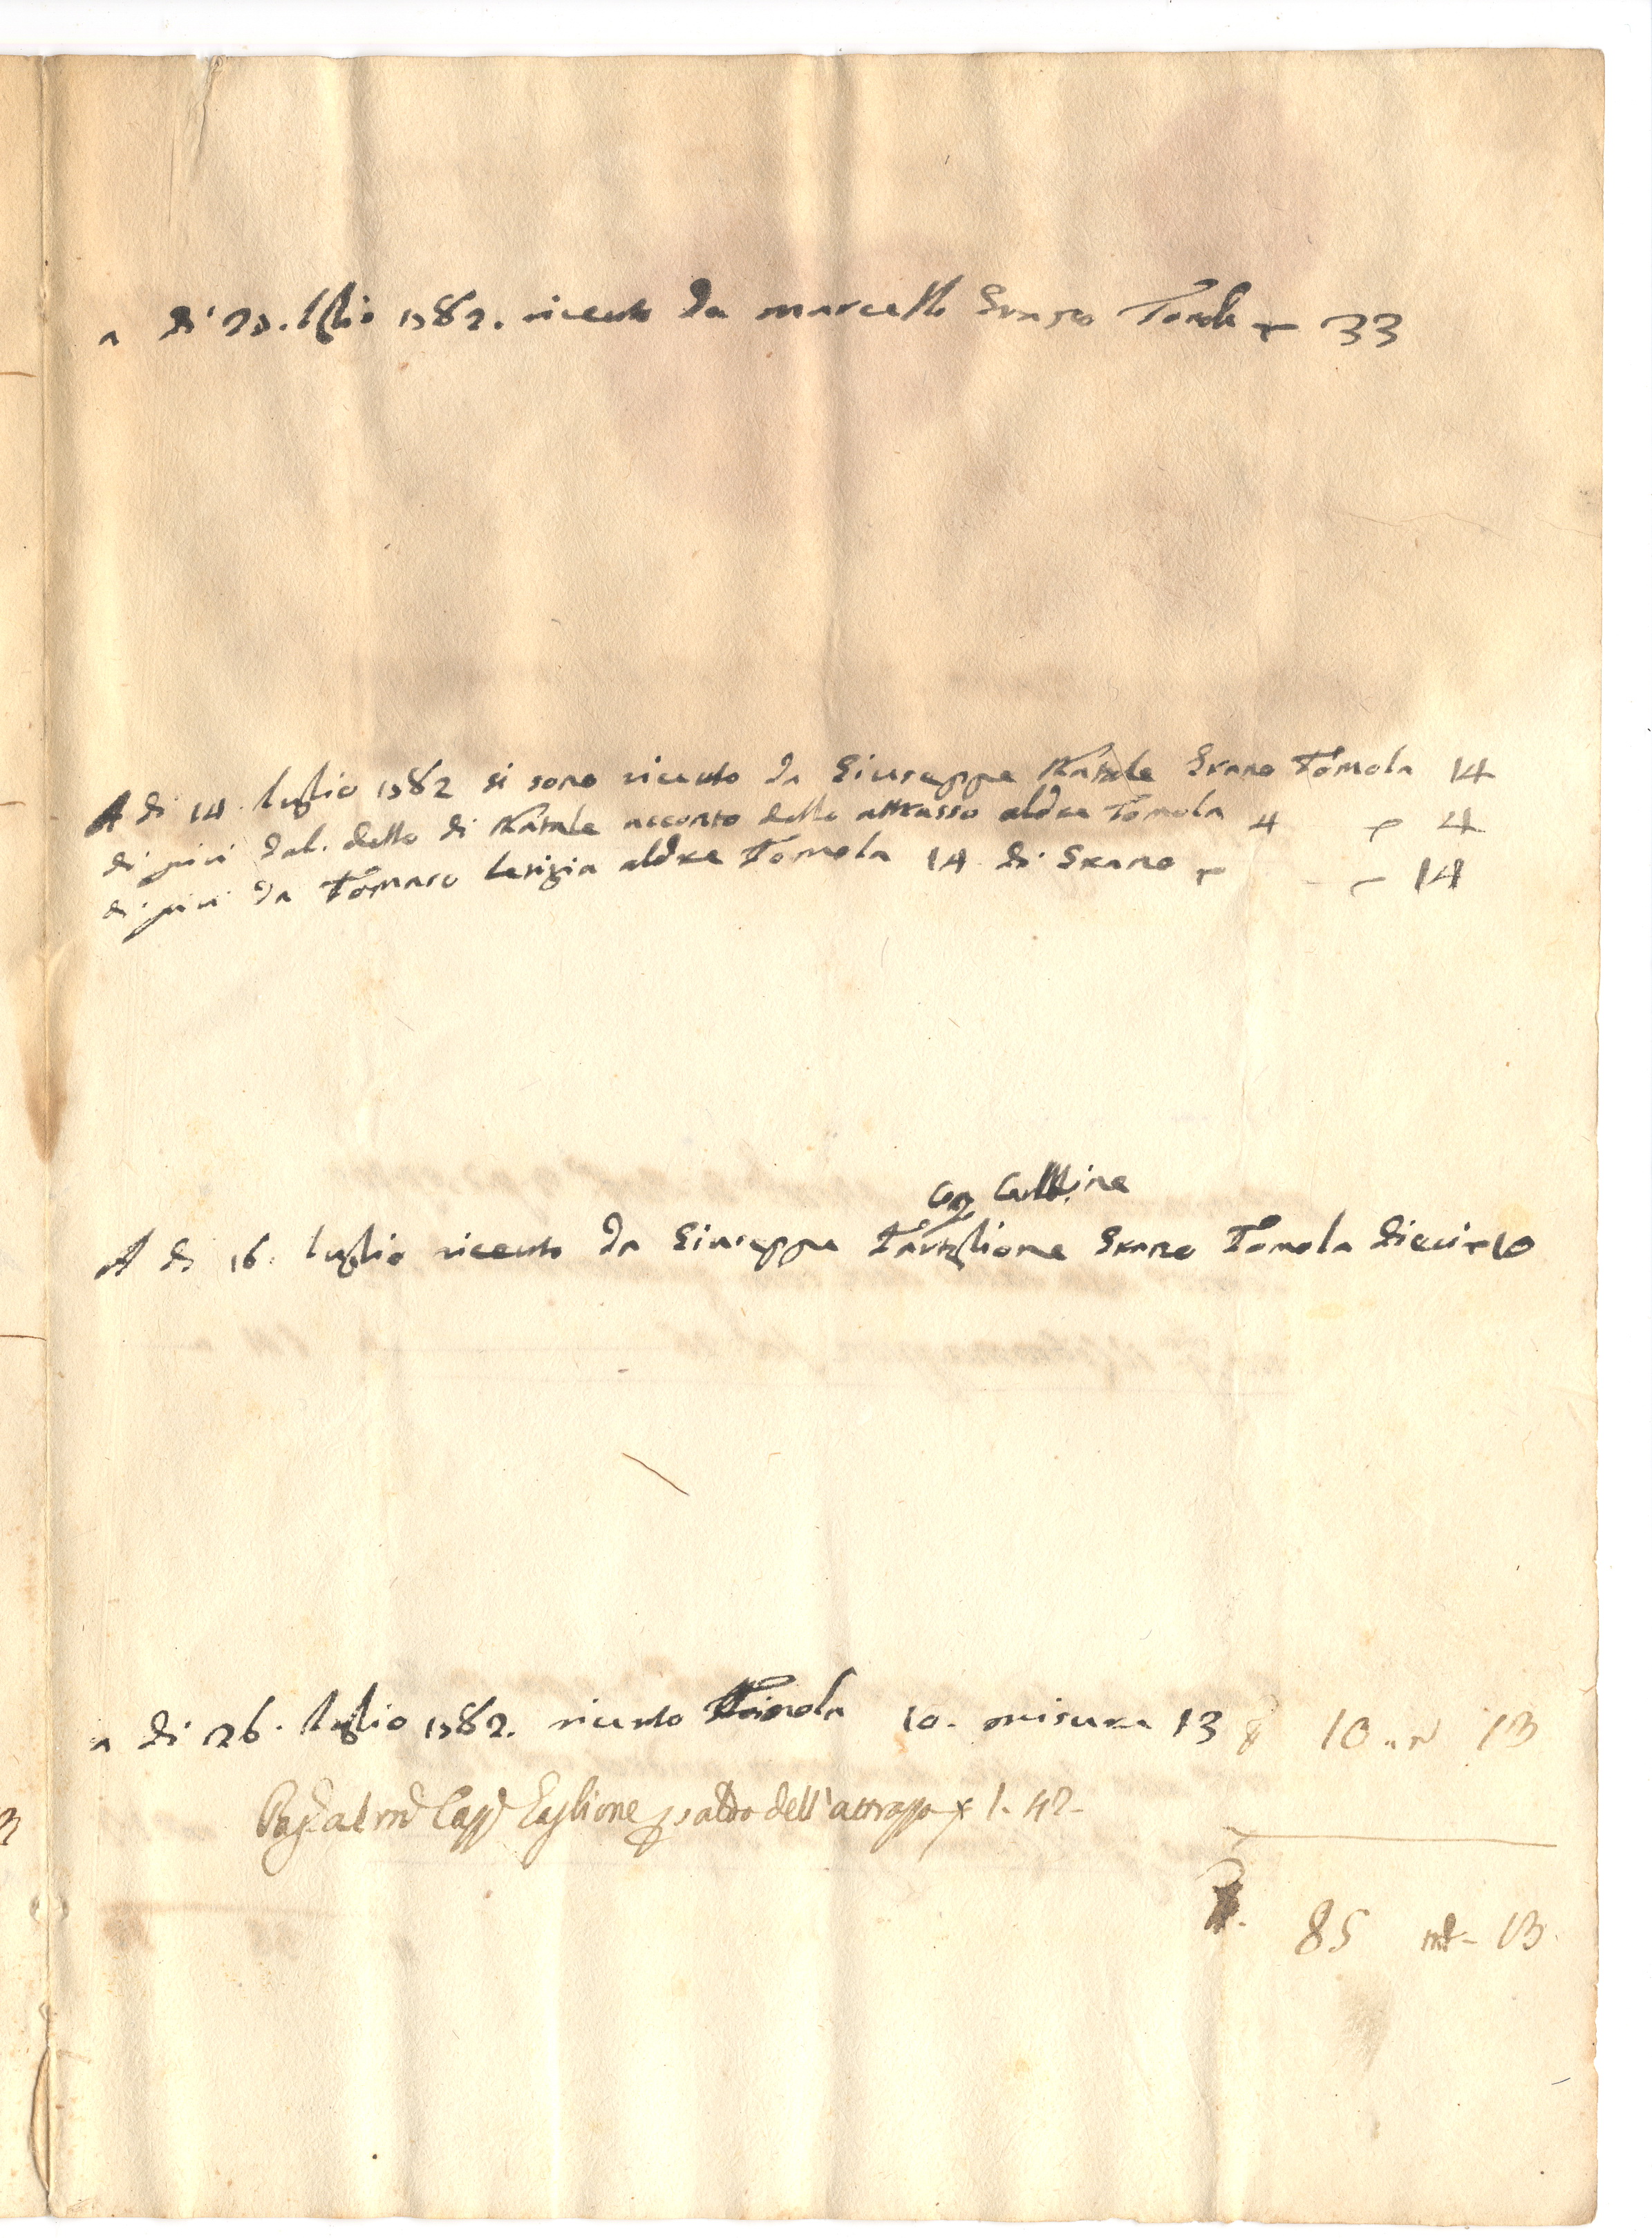 a di 23. luglio 1782. riceuto da marcello Grano Tomola 33
A di 14. luglio 1782 si sono riceuto da Giuseppe Natale Grano Tomola 14
di piu dal. detto di Natale acconto dello attrasso aldre Tomola 4 4
di piu da Tomaso Letizia aldre Tomola 14 di Grano 14
A di 16. luglio riceuto da Giuseppe Tartaglione Grano Tomola dieci 10
a di 26. luglio 1782. riceuto Tomola 10. misura 13 10 13
al saldo dell'attrasso 1. 42
85 13